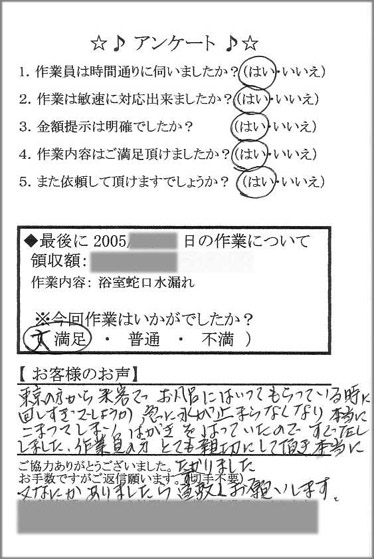 ☆♪ アンケート ♪☆
1. 作業員は時間通りに伺いましたか？(はい・いいえ)
2. 作業は敏速に対応出来ましたか？(はい・いいえ)
3. 金額提示は明確でしたか？ (はい・いいえ)
4. 作業内容はご満足頂けましたか？(はい・いいえ)
5. また依頼して頂けますでしょうか？(はい・いいえ)
◆最後に 2005/ 日の作業について
領収額:
作業内容: 浴室蛇口水漏れ
※今回作業はいかがでしたか？
満足 ・ 普通 ・ 不満 )
【 お客様のお声】
東京の方から来客でお風呂にはいってもらっている時に
回しすぎでしょうか 急に水が止まらなくなり 本当に
こまってしまい はがきをはっていたので すぐ電話
しました。作業員の方 とても親切にして頂き本当に
ご協力ありがとうございました。たすかりました
お手数ですがご返信願います。(切手不要)
又なにかありましたら 宜敷くお願いします。